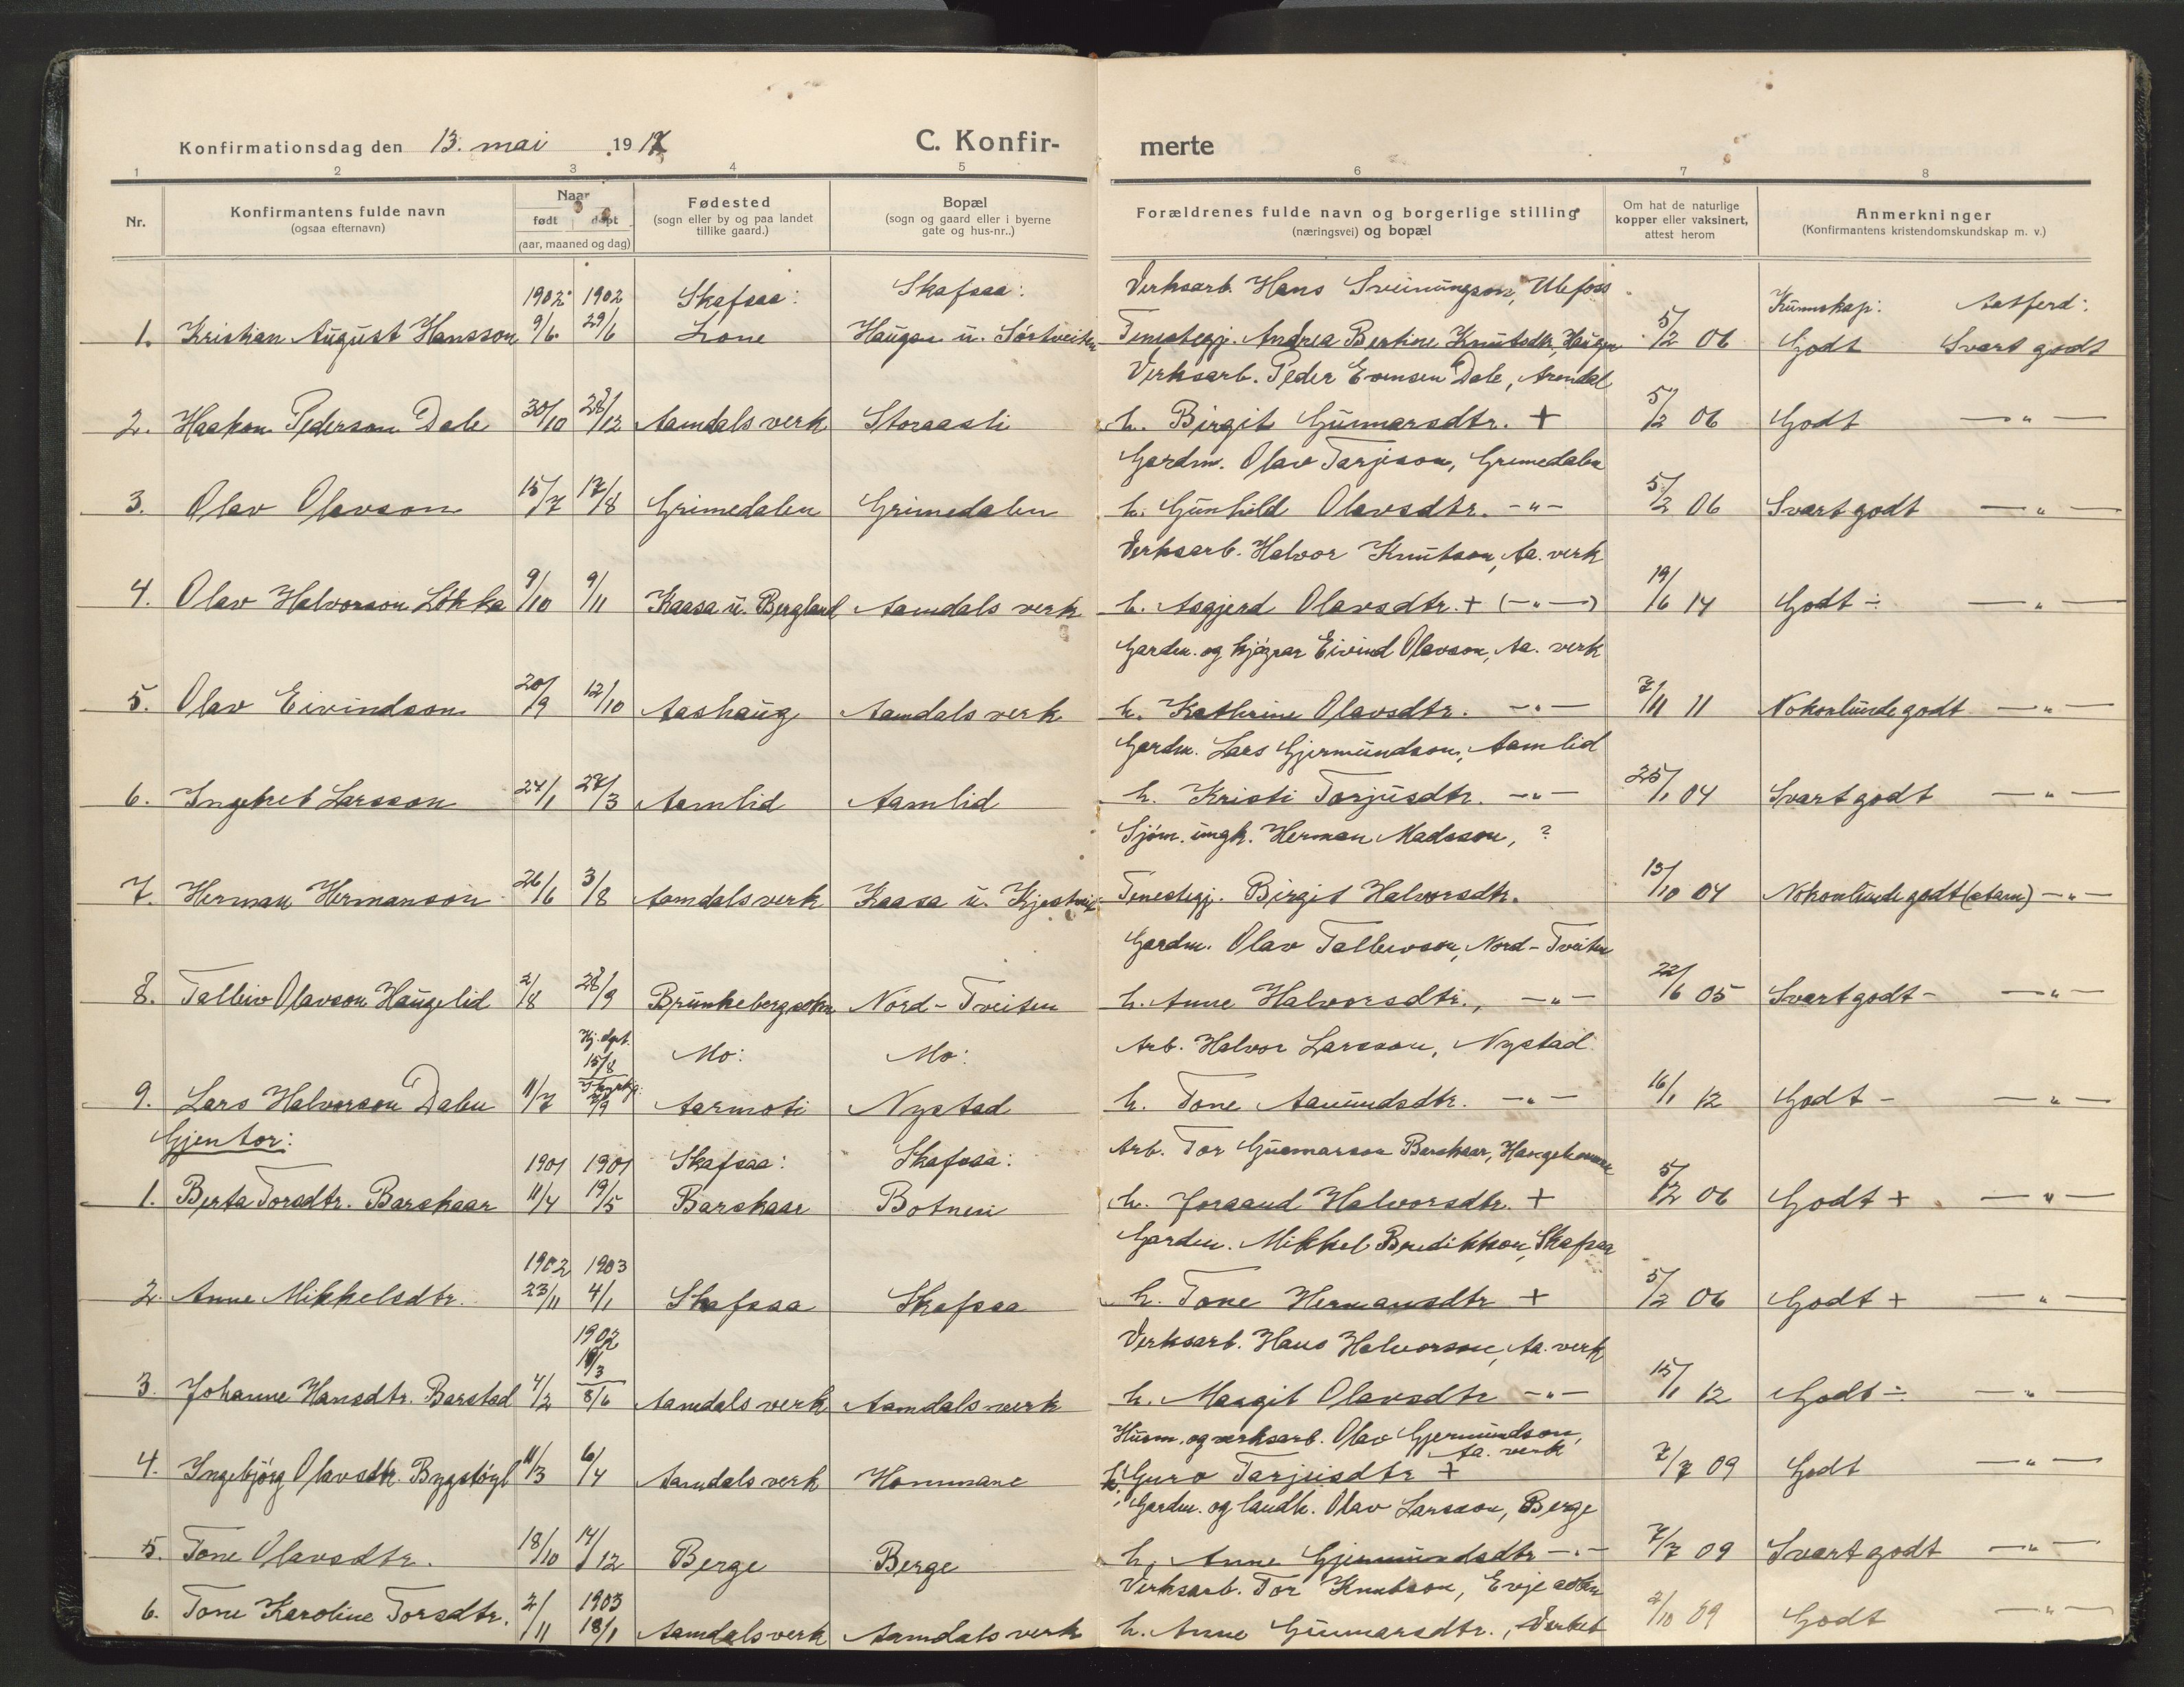 Konfirmationsdag den 13. mai 1917 C. Konfir- merte
1 2 3 4 5 6 7 8
Nr. Konfirmantens fulde navn (ogsaa efternavn) Naar født døpt (aar, maaned og dag) Fødested (sogn eller by og paa landet tillike gaard.) Bopæl (sogn og gaard eller i byerne gate og hus-nr..) Forældrenes fulde navn og borgerlige stilling (næringsvei) og bopæl Om hat de naturlige kopper eller vaksinert, attest herom Anmerkninger (Konfirmantens kristendomskundskap m. v.)
1902 1902 Skafsaa: Skafsaa: Verksarb. Hans Sveinungson, Ulefoss Kunnskap: Aatferd:
1. Kristian August Hansson 9/6 29/6 Lone Haugen u. Sørtveiten Tenestegj. Andrea Bertine Knutsdtr, Haugen 5/2 06 Godt Svært godt
Verksarb. Peder Evensen Dale, Arendal
2. Haakon Pederson Dale 30/10 28/12 Aamdals verk Storaasli h. Birgit Gunnarsdtr. + 5/2 06 Godt —„—
Gardm. Olav Tarjeson, Grimedalen
3. Olav Olavson 15/7 17/8 Grimedalen Grimedalen h. Gunhild Olavsdtr. -„- 5/2 06 Svært godt —„—
Verksarb. Halvor Knutson, Aa. verk
4. Olav Halvorson Løkka 9/10 9/11 Kaasa u. Bergland Aamdals verk h. Asgjerd Olavsdtr. + (—„—) 19/6 14 Godt ÷ —„—
Gardm. og kjøgrar Eivind Olavson, Aa. verk
5. Olav Eivindson 20/9 12/10 Aashaug Aamdals verk h. Kathrine Olavsdtr. -„- 7/11 11 Nokonlunde godt —„—
Gardm. Lars Gjermundson, Aamlid
6. Ingebret Larsson 24/1 27/3 Aamlid Aamlid h. Kristi Torjusdtr. -„- 25/1 04 Svært godt —„—
Sjøm. ungk. Herman Madsson, ?
7. Herman Hermanson 26/6 3/8 Aamdals verk Kaasa u. Kjostveit Tenestegj. Birgit Halvorsdtr. 13/10 04 Nokonlunde godt (stam) —„—
Gardm. Olav Tallevson, Nord-Tveiten
8. Talleiv Olavson Haugelid 2/8 28/9 Brunkeberg sokn Nord-Tveiten h. Anne Halvorsdtr., -„- 22/6 05 Svært godt - —„—
Hj. døpt. 15/8 Mo: Mo: Arb. Halvor Larsson, Nystad
9. Lars Halvorson Dalen 11/7 I kyrkj. 7/9 Aarmoti Nystad h. Tone Aamundsdtr. -„- 16/1 12 Godt - —„—
Gjentor:
1901 1901 Skafsaa: Skafsaa: Arb. Tor Gunnarson Barskaar,
1. Berta Torsdtr. Barskaar 11/4 19/5 Barskaar Botnen h. Joraand Halvorsdtr. + 5/2 06 Godt + —„—
1902 1903 Gardm. Mikkel Bendikson, Skafsaa
2. Anne Mikkelsdtr. 23/11 4/1 Skafsaa Skafsaa h. Tone Hermansdtr + 5/2 06 Godt + —„—
1902 Verksarb. Hans Halvorson, Aa. verk
3. Johanne Hansdtr. Barstad 4/2 8/6 Aamdals verk Aamdals verk h. Margit Olavsdtr -„- 15/1 12 Godt ÷ —„—
Husm. og verksarb. Olav Gjermundson, Aa. verk
4. Ingebjørg Olavsdtr. Bygstøyl 11/3 6/4 Aamdals verk Hommane h. Guro Tarjeisdtr + 7/7 09 Godt —„—
Gardm. og landh. Olav Larsson, Berge
5. Tone Olavsdtr. 18/10 14/12 Berge Berge h. Anne Gjermundsdtr -„- 7/7 09 Svært godt —„—
1903 Verksarb. Tor Knutson, Evje sokn
6. Tone Karoline Torsdtr. 2/11 18/1 Aamdals verk Aamdals verk h. Anne Gunnarsdtr., Verket 2/10 09 Godt —„—